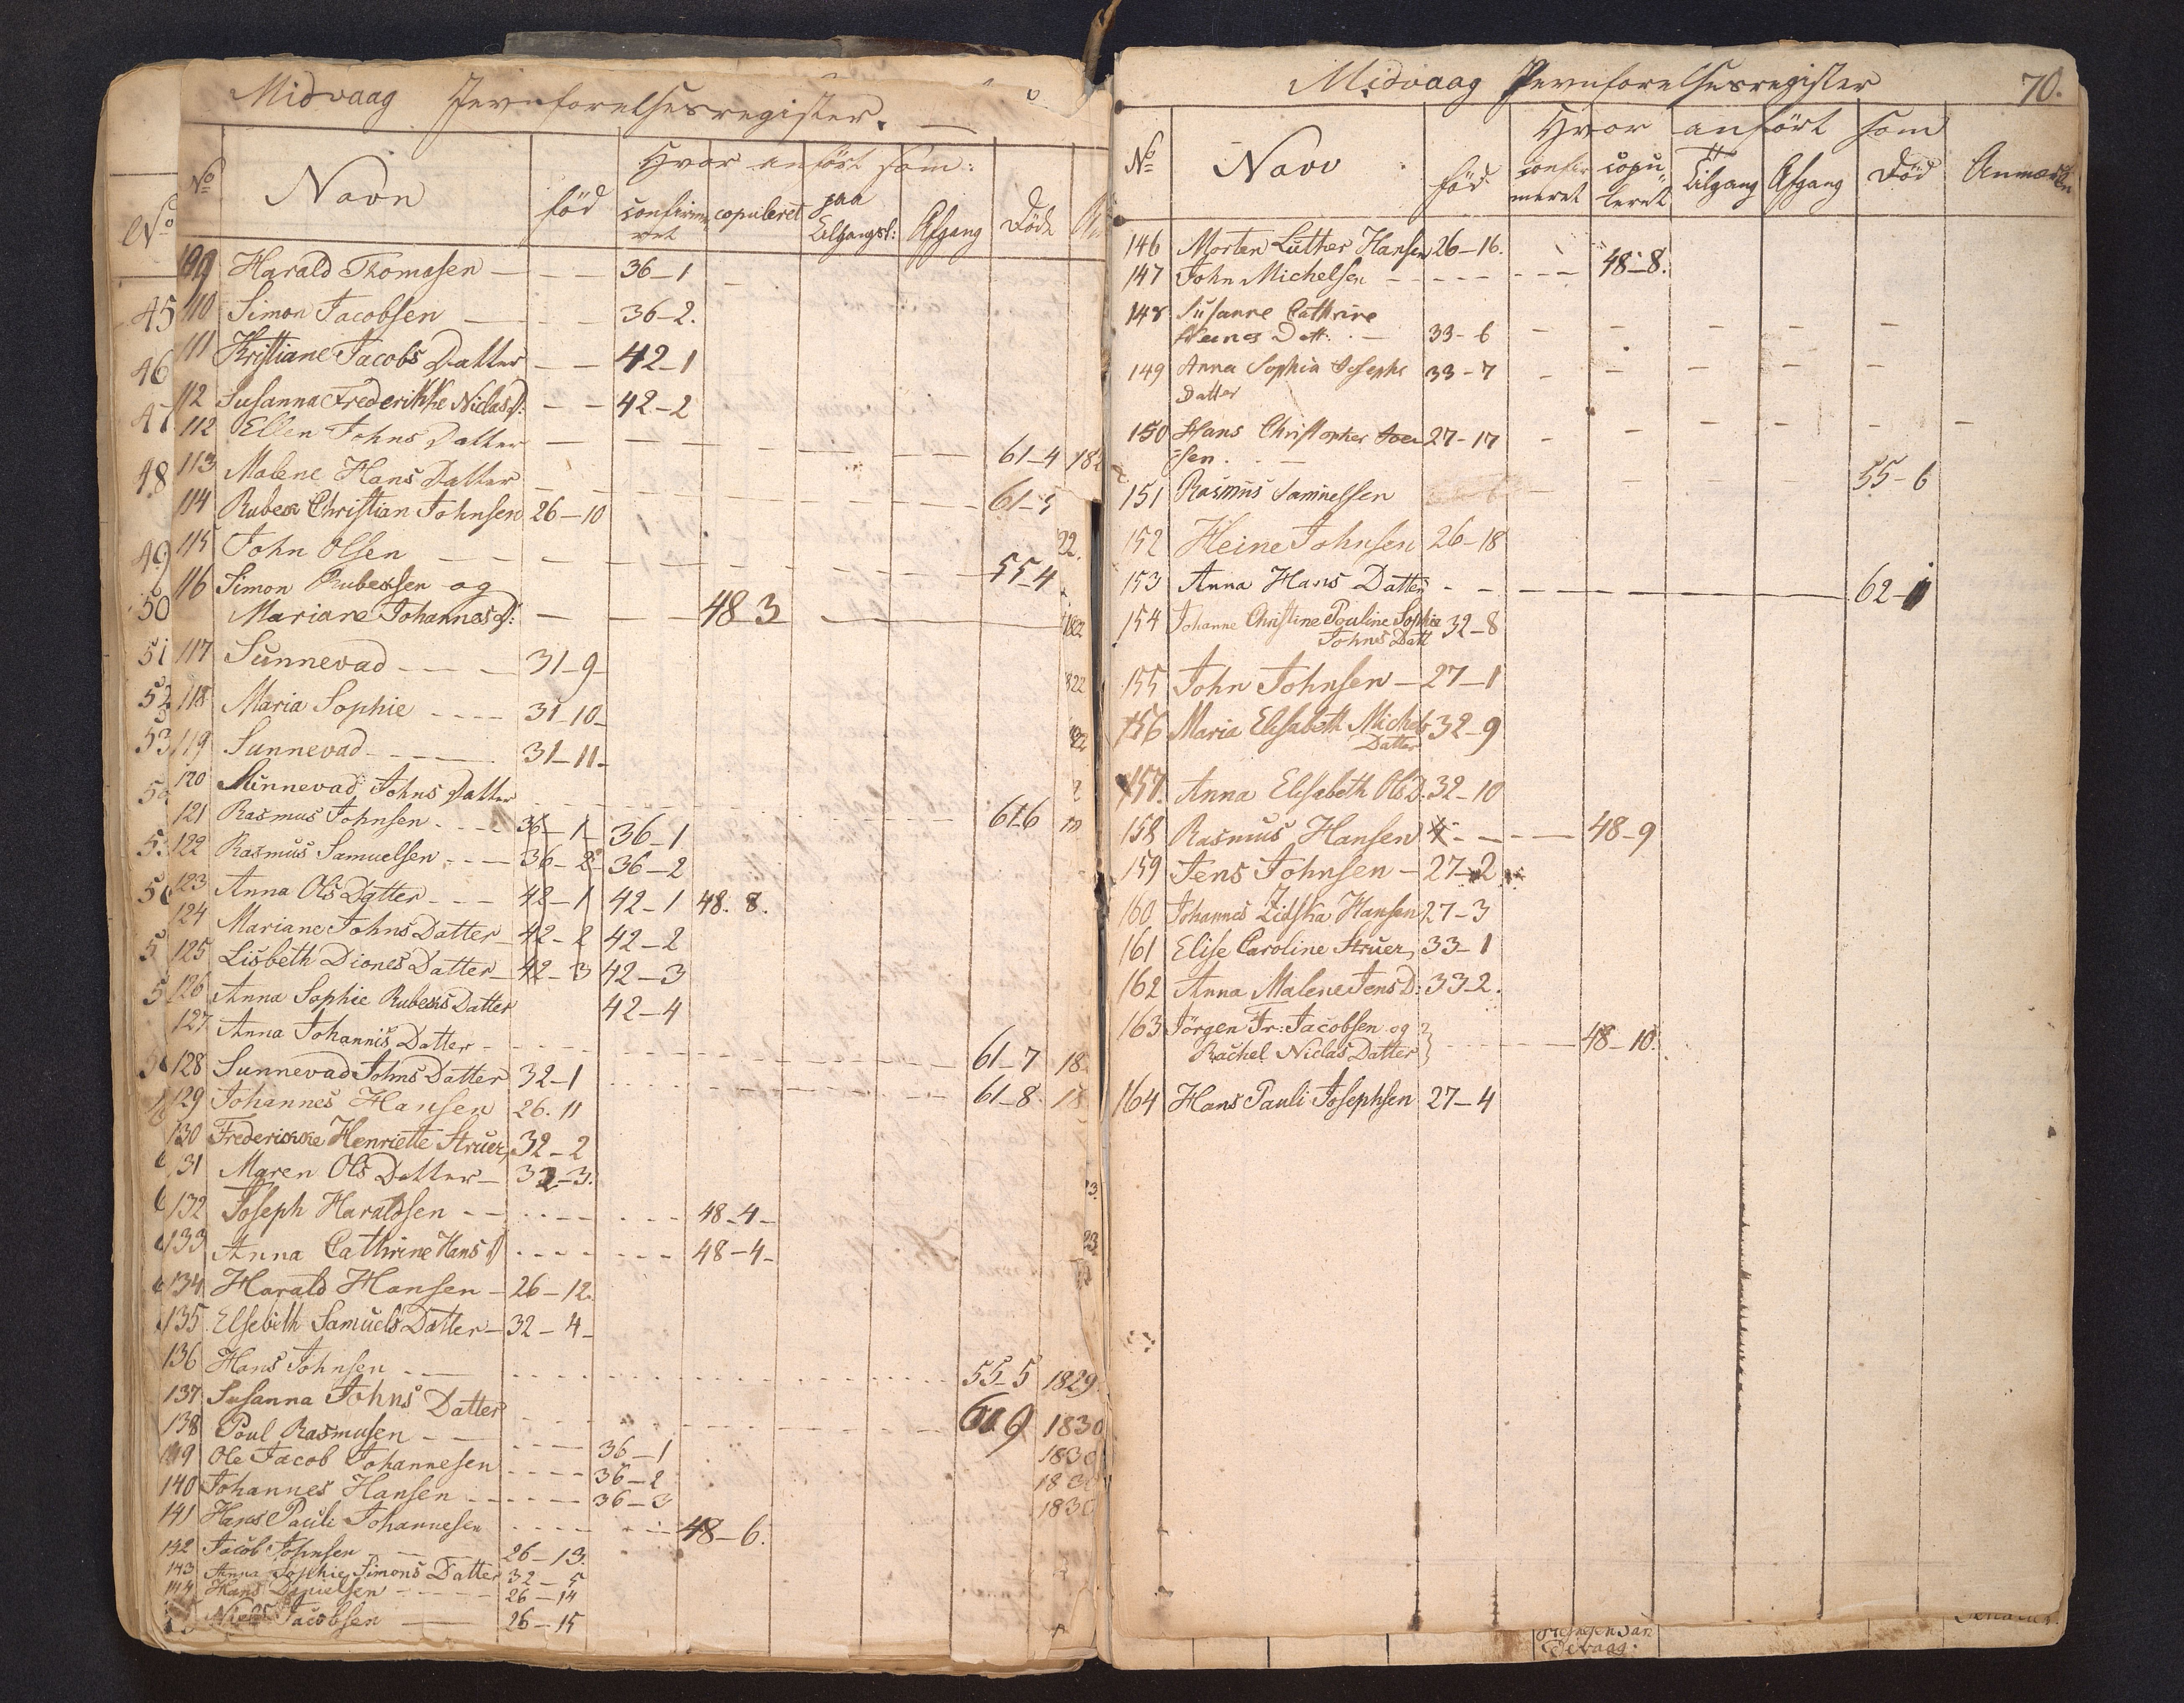 Midvaag Jevnførelsesregister.
No Navn Hvor anført som:
fød confirmeret copuleret paa Tilgangsl: Afgang Døde
109 Harald Thomasen — — 36–1
110 Simon Jacobsen — — 36–2.
111 Kristiane Jacobs Datter — — 42–1
112 Susanna Frederikke Niclas D: — — 42–2
112 Ellen Johns Datter — — — — — — 61–4 182
113 Malene Hans Datter — — — — — — 61–5
114 Rubek Christian Johnsen 26–10
115 John Olsen — — — — — — 55–4
116 Simon Rubeksen og
Mariane Johannes D: — — 48–3
117 Sunnevad — — 31–9–
118 Maria Sophie - - - - 31–10–
119 Sunnevad — — 31–11–
120 Sunnevad Johns Datter - - - - 61–6
121 Rasmus Johnsen - - - 36–1– 36–1
122 Rasmus Samuelsen - - - 36–2 36–2
123 Anna Ols Datter - - - 42–1 42–1 48. 8.
124 Mariane Johns Datter – 42–2 42–2
125 Lisbeth Diones Datter – 42–3 42–3
126 Anna Sophie Rubeks Datter 42–4
127 Anna Johannis Datter - - - - 61–7 18
128 Sunnevad Johns Datter 32–1 - - - - 61–8. 18
129 Johannes Hansen 26. 11
130 Frederikke Henriette Struer, 32–2
31 Maren Ols Datter – 32–3.
132 Joseph Haraldsen - - - - 48–4–
133 Anna Cathrine Hans D - - - - 48–4–
134 Harald Hansen – 26–12.
135 Elsebith Samuels Datter – 32–4–
136 Hans Johnsen - - - - 55–5 1829.
137 Susanna Johns Datter - - - - 61 9 1830
138 Poul Rasmusen - - - - 36–1 1830
149 Ole Jacob Johannesen - - - - 36–2 1830
140 Johannes Hansen - - - - 36–3 1830
141 Hans Pauli Johannesen - - - - 48–6.
142 Jacob Johnsen - - 26–13.
143 Anna Sophie Simons Datter 32–5
144 Hans Danielsen - - - - 26–14
Niels Jacobsen — 26–15
No
45
46
47
48
49
50
51
52
53
Midvaag Jevnforelsesregister 70.
No Navn Hvor anført som
fød confirmeret copuleret Tilgang Afgang Død Anmærkn
146 Morten Luther Hansen 26–16.
147 John Michelsen - - - - 48–8.
148 Susanne Cathrine
Heines Datt: — 33–6 – – – – –
149 Anna Sophia Josephs 33–7 – – – – –
Datter
150 Hans Christopher Joen 27–17 – – – – – –
sen. —
151 Rasmus Samuelsen – – – – 55–6
152 Heine Johnsen 26–18
153 Anna Hans Datter - - — — — 62–1
154 Johanne Christine Pouline Sophie 32–8
Johns Datt
155 John Johnsen – 27–1
156 Maria Elisabeth Michels 32–9
Datter
157. Anna Elisabeth Ols D: 32–10
158 Rasmus Hansen - - - — 48–9
159 Jens Johnsen – 27–2
160 Johannes Zidska Hansen 27–3
161 Elise Caroline Struer, 33–1
162 Anna Malene Jens D: 33–2.
163 Jörgen Fr: Jacobsen og
Rachel Niclas Datter } - - - - 48–10.
164 Hans Pauli Josephsen 27–4